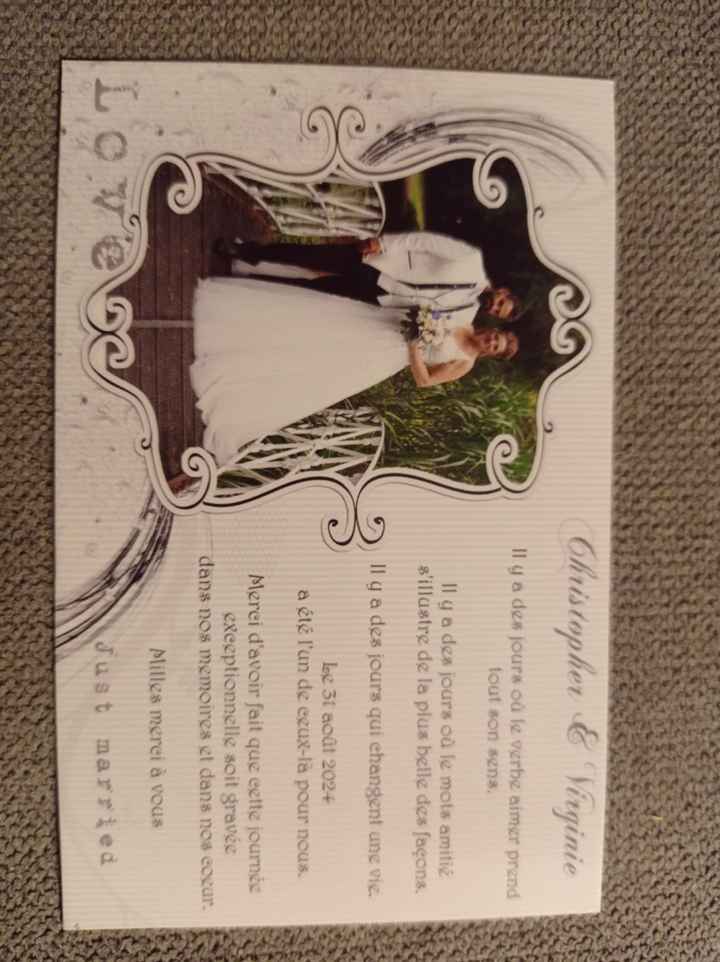 Christopher & Virginie
Il y a des jours où le verbe aimer prend
tout son sens.
Il y a des jours où le mots amitié
s'illustre de la plus belle des façons.
Il y a des jours qui changent une vie.
Le 31 août 2024
a été l'un de ceux-là pour nous.
Merci d'avoir fait que cette journée
exceptionnelle soit gravée
dans nos memoires et dans nos coeur.
Milles merci à vous
Love
Just married